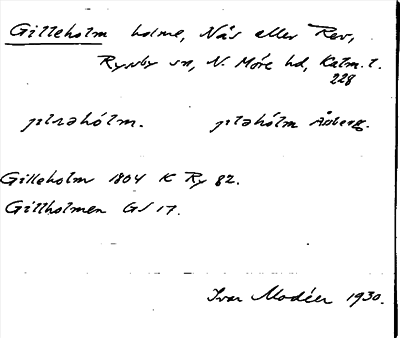 Gilleholm holme, Näs eller Rev,
Ryssby sn, N. Möre hd, Kalm. l.
228
jıləhólm. jıləhólm Åsberg.
Gilleholm 1804 K Ry 82.
Gillholmen GS 17.
Ivar Modéer 1930.